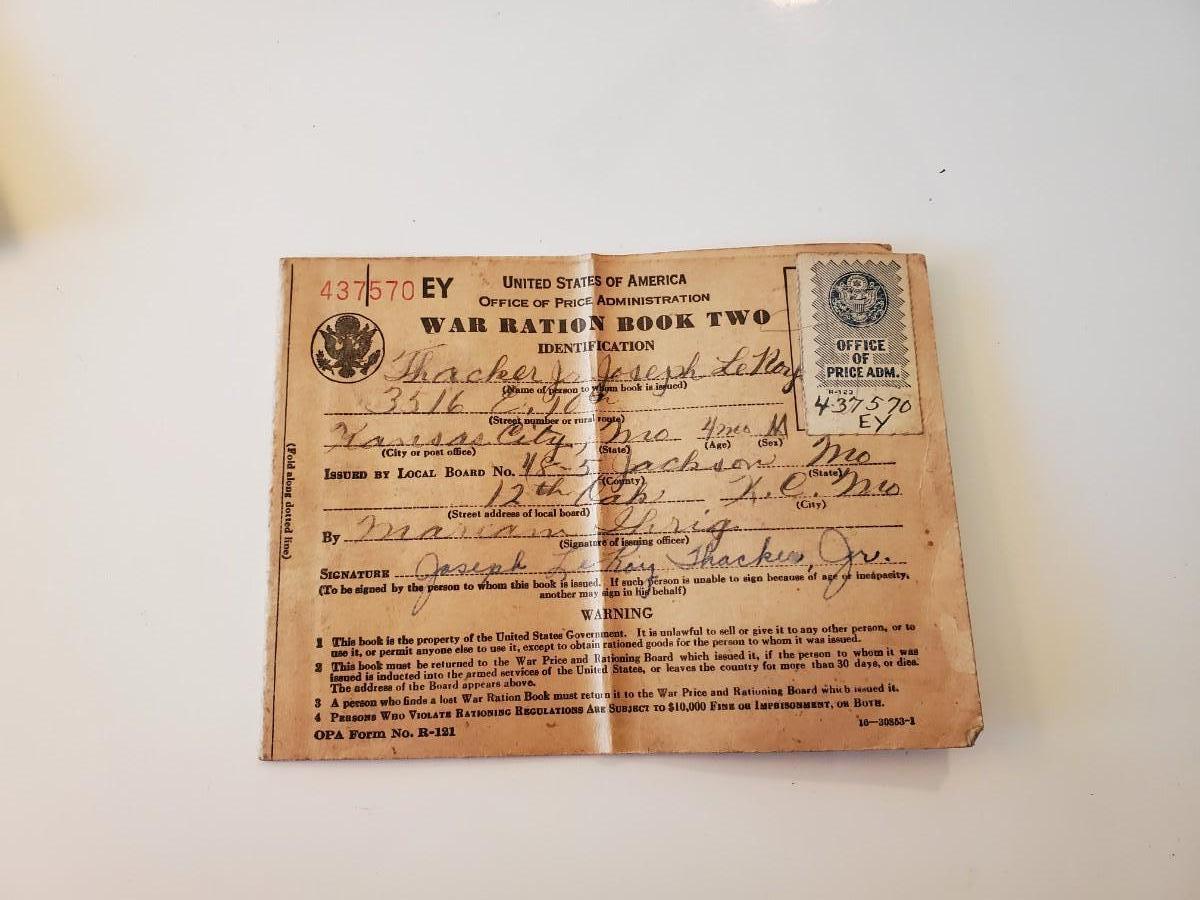 437570 EY
UNITED STATES OF AMERICA
OFFICE OF PRICE ADMINISTRATION
WAR RATION BOOK TWO
IDENTIFICATION
OFFICE
OF
PRICE ADM.
R-123
437570
EY
Thacker Jr Joseph LeRoy
(Name of person to whom book is issued)
3516 E. 10th
(Street number or rural route)
Kansas City, Mo 4mo M
(City or post office) (State) (Age) (Sex)
ISSUED BY LOCAL BOARD NO. 48-5 Jackson Mo
(County) (State)
12th Oak K.C. Mo
(Street address of local board) (City)
By Mariam Ihrig
(Signature of issuing officer)
SIGNATURE Joseph LeRoy Thacker, Jr.
(To be signed by the person to whom this book is issued. If such person is unable to sign because of age or incapacity,
another may sign in his behalf)
WARNING
1 This book is the property of the United States Government. It is unlawful to sell or give it to any other person, or to
use it, or permit anyone else to use it, except to obtain rationed goods for the person to whom it was issued.
2 This book must be returned to the War Price and Rationing Board which issued it, if the person to whom it was
issued is inducted into the armed services of the United States, or leaves the country for more than 30 days, or dies.
The address of the Board appears above.
3 A person who finds a lost War Ration Book must return it to the War Price and Rationing Board which issued it.
4 PERSONS WHO VIOLATE RATIONING REGULATIONS ARE SUBJECT TO $10,000 FINE OR IMPRISONMENT, OR BOTH.
OPA Form No. R-121
16-30853-1
(Fold along dotted line)